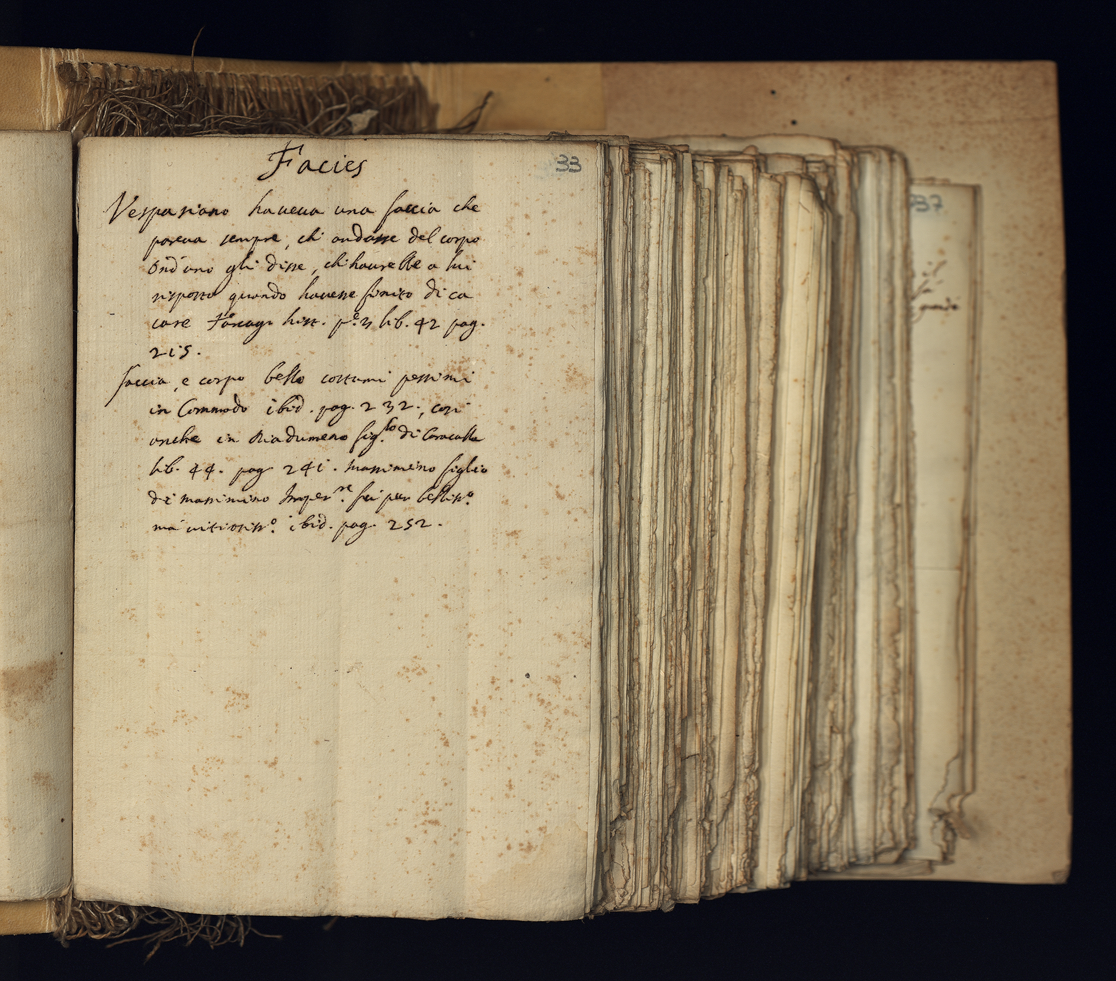 Facies
33
Vespasiano haueua una faccia che
pareua sempre, ch'andasse del corpo
Ond'uno gli disse, ch'haurebbe a lui
risposto quando hauesse finito di ca
care hist. p.e lib. 42 pag.
215.
faccia, e corpo bello costumi pessimi
in Commodo ibid. pag. 232., così
anche in Diadumeno fig.lo di Caracalla
lib. 44. pag 241. Massimino figlio
di Massimino Imper.re fù pur belliss.o
ma uitiosiss.o ibid. pag. 252.
337